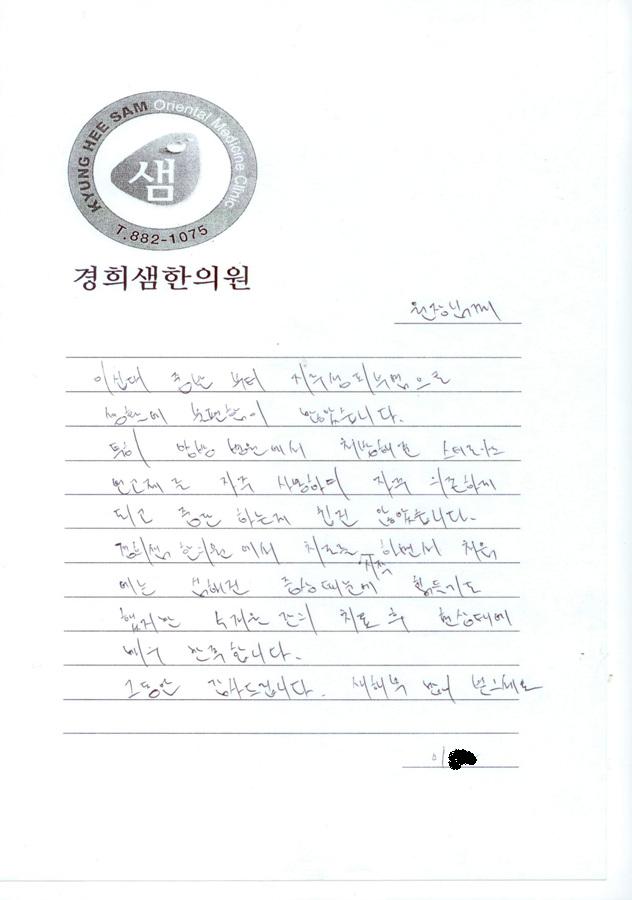 KYUNG HEE SAM Oriental Medicine Clinic
샘
T.882-1075
경희샘한의원
원장님께
이십대 중반 부터 지루성피부염으로
생활에 불편함이 많았습니다.
특히 병원에서 처방해준 스테로이드
연고제를 자주 사용하여 자꾸 의존하게
되고 중단 하는게 쉽진 않았습니다.
경희샘 한의원에서 치료를 하면서 처음
시작
에는 심해진 증상때문에 힘들기도
했지만 치료 후 현상태에
매우 만족합니다.
그동안 감사드립니다. 새해복 많이 받으세요
이